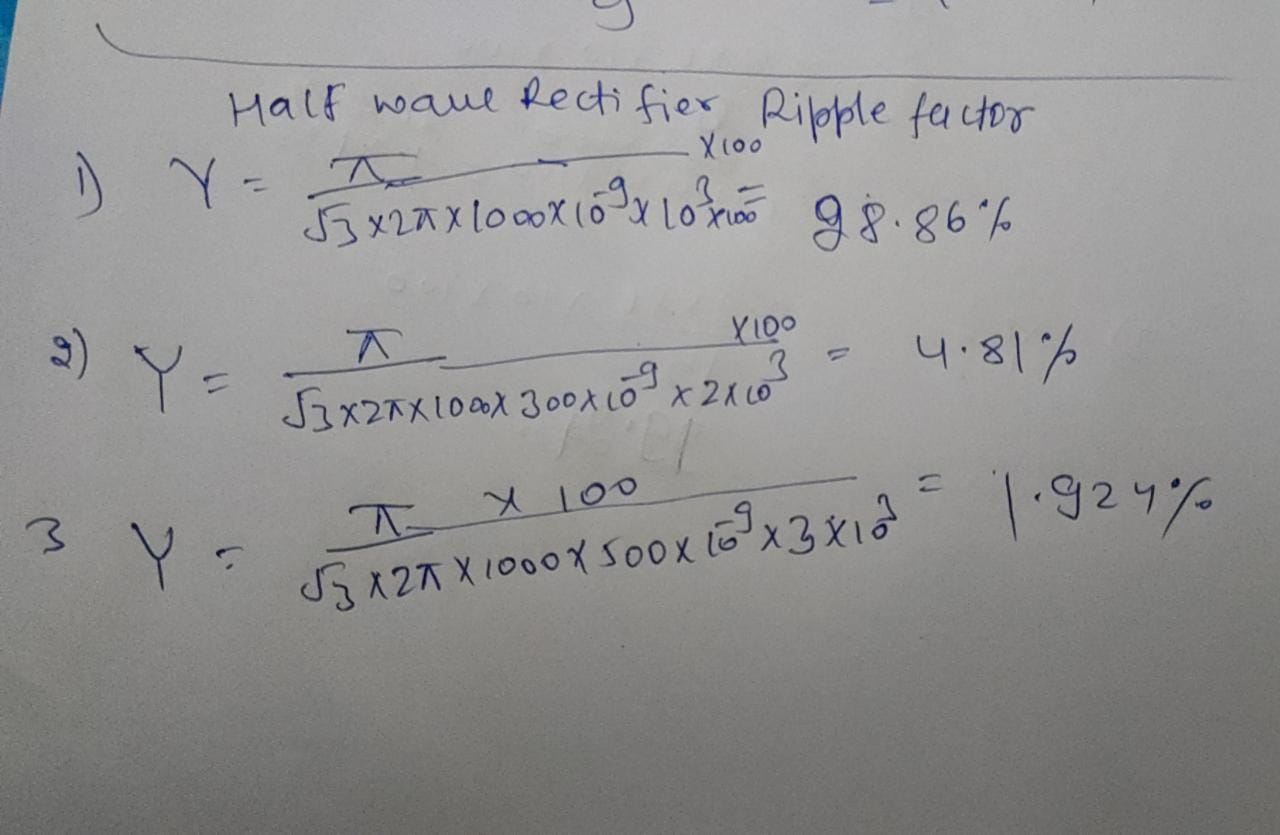 Half wave Rectifier Ripple factor
1) γ = π ×100 / √3 ×2π×1000×10⁻⁹×10³×100 = 98.86%
2) γ = π ×100 / √3×2π×1000×300×10⁻⁹ ×2×10³ = 4.81%
3 γ = π × 100 / √3 ×2π ×1000×500×10⁻⁹×3×10³ = 1.924%